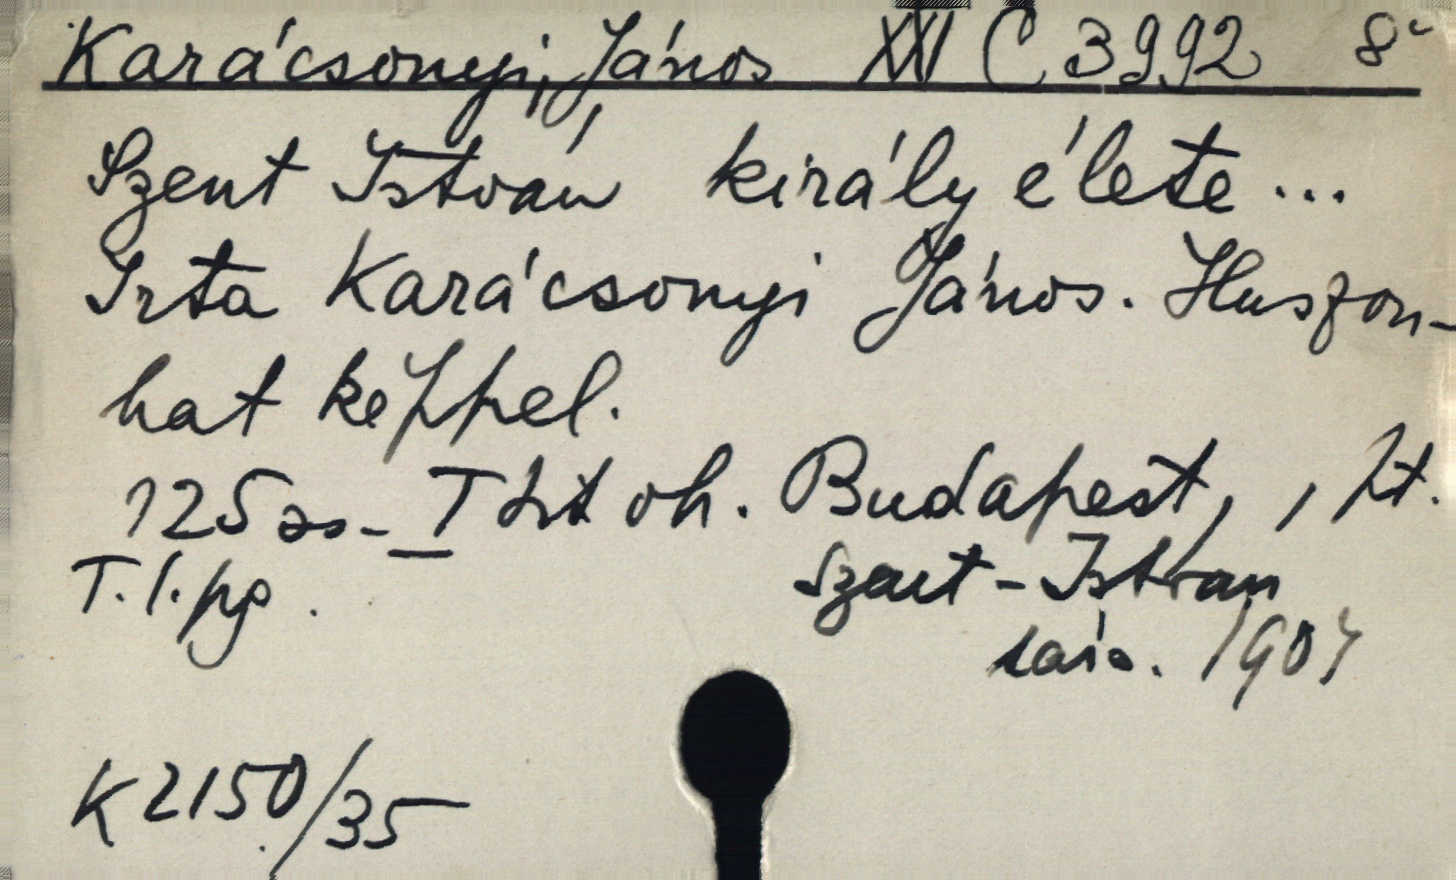 Karácsonyi, János XXI C 3992 8°
Szent István király élete ...
Irta Karácsonyi János. Huszon-
hat képpel.
125 ss - I tört oh. Budapest,
Szent-István
társ. 1904
T.l.pg.
K 2150/35